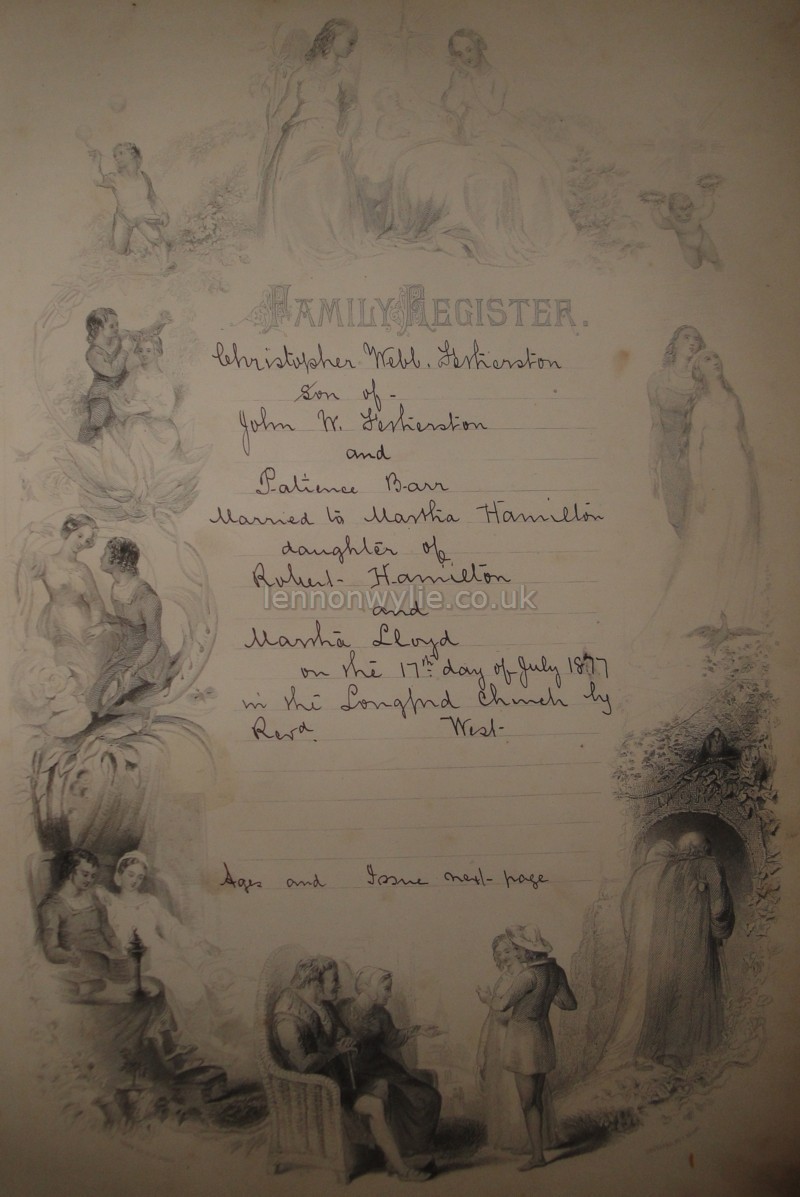 FAMILY REGISTER.
Christopher Webb. Fetherston
Son of -
John W. Fetherston
and
Patience Barr
Married to Martha Hamilton
daughter of
Robert Hamilton
lennonwylie.co.uk
and
Martha Lloyd
on the 17th day of July 1877
in the Longford Church by
Revd. West
Ages and Issue next page